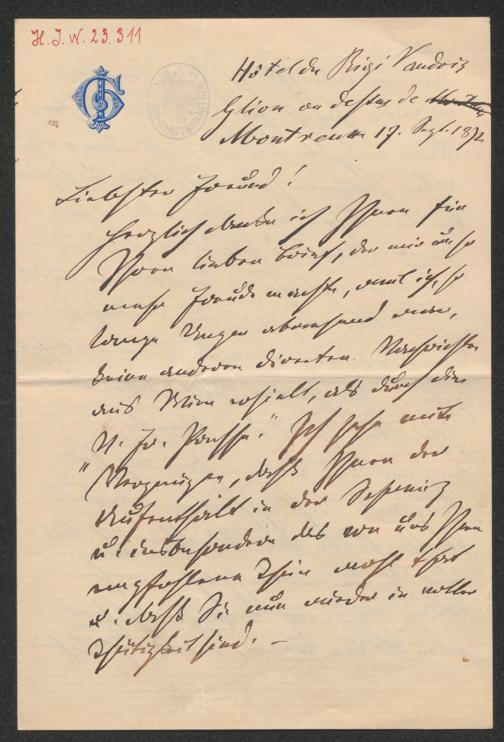 H. I. N. 23.311
Hôtel du Rigi Vaudois
Glion au dessus de
Montreux 17. Sept. 187
Liebster Freund!
Herzlich danke ich Ihnen für
Ihren lieben Brief, der mir um so
mehr Freude machte, weil ich, so
lange abwesend war,
keine anderen directen Nachrichten
aus Wien erhielt, als durch die
"N. Fr. Presse." Ich sehe mit
Vergnügen, daß Ihnen der
Aufenthalt in der Schweiz
u. insbesondere das von uns Ihnen
empfohlene wohl that
u. daß Sie nun wieder in voller
Thätigkeit sind. –